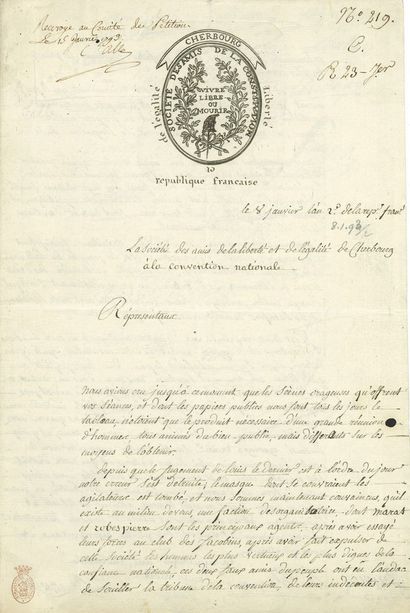 Renvoyé au Comité de Pétition
Le 15 janvier 1793
No. 219.
C.
R 23 - Jer
CHERBOURG
SOCIÉTÉ DES AMIS DE LA CONSTITUTION
VIVRE
LIBRE
OU
MOURIR
de l'égalité
Liberté
republique francaise
le 8 janvier l'an 2e dela rep. franc
8.1.93
La société des amis de la liberté et de légalité de Cherbourg
à la convention nationale
Réprésentans
nous avions cru jusqu'à ce moment que les scènes orageuses qu'offrent
vos séances, et dont les papiers publics nous font tous les jours le
tableau, n'étoient que le produit nécessaire d'une grande réunion
d'hommes tous animés du bien public, mais différents sur les
moyens de l'obtenir.
depuis que le jugement de louis le dernier est à l'ordre du jour
notre erreur s'est détruite, le masque dont se couvraient les
agitateurs est tombé, et nous sommes maintenant convaincus, qu'il
existe au milieu de vous, une faction désorganisatrice, dont marat
et robespierre sont les principaux agents, après avoir essayé
leurs forces au club des Jacobins, après avoir fait expulser de
cette société les hommes les plus vertueux et les plus dignes de la
confiance nationale, ces deux faux amis du peuple ont eu l'audace
de souiller la tribune de la convention, de leurs indécentes et